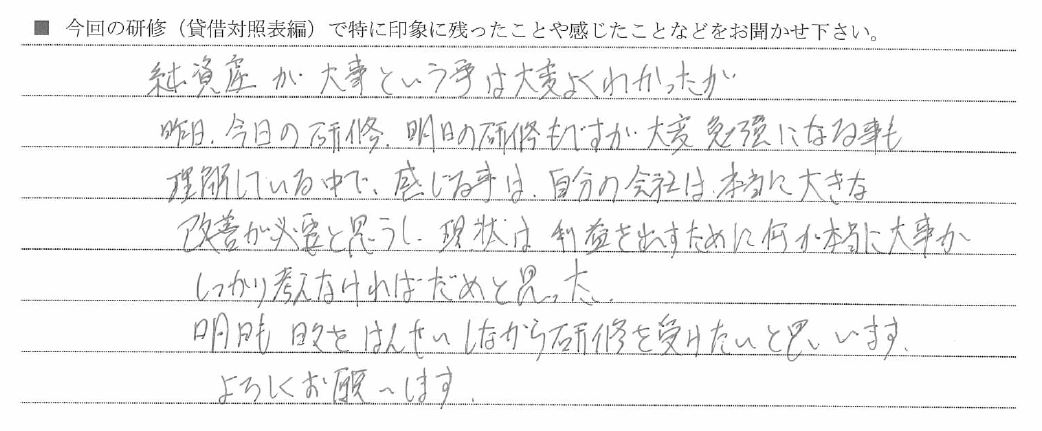 ■ 今回の研修（貸借対照表編）で特に印象に残ったことや感じたことなどをお聞かせ下さい。
純資産が大事という事は大変よくわかったが
昨日、今日の研修、明日の研修もですが大変勉強になる事も
理解している中で、感じる事は、自分の会社は、本当に大きな
改善が必要と思うし、現状は利益を出すために何が本当に大事か
しっかり考えなければだめと思った。
明日も日々をはんせいしながら研修を受けたいと思います。
よろしくお願いします。